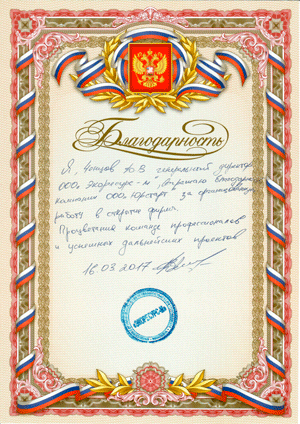 Благодарность
Я, Концов Ю.В генеральный директор
ООО, выражаю благодарность
компании ООО, Юрстарт" за грамотную
работу в открытии фирм.
Процветания команде профессионалов
и успешных дальнейших проектов
16.03.2017